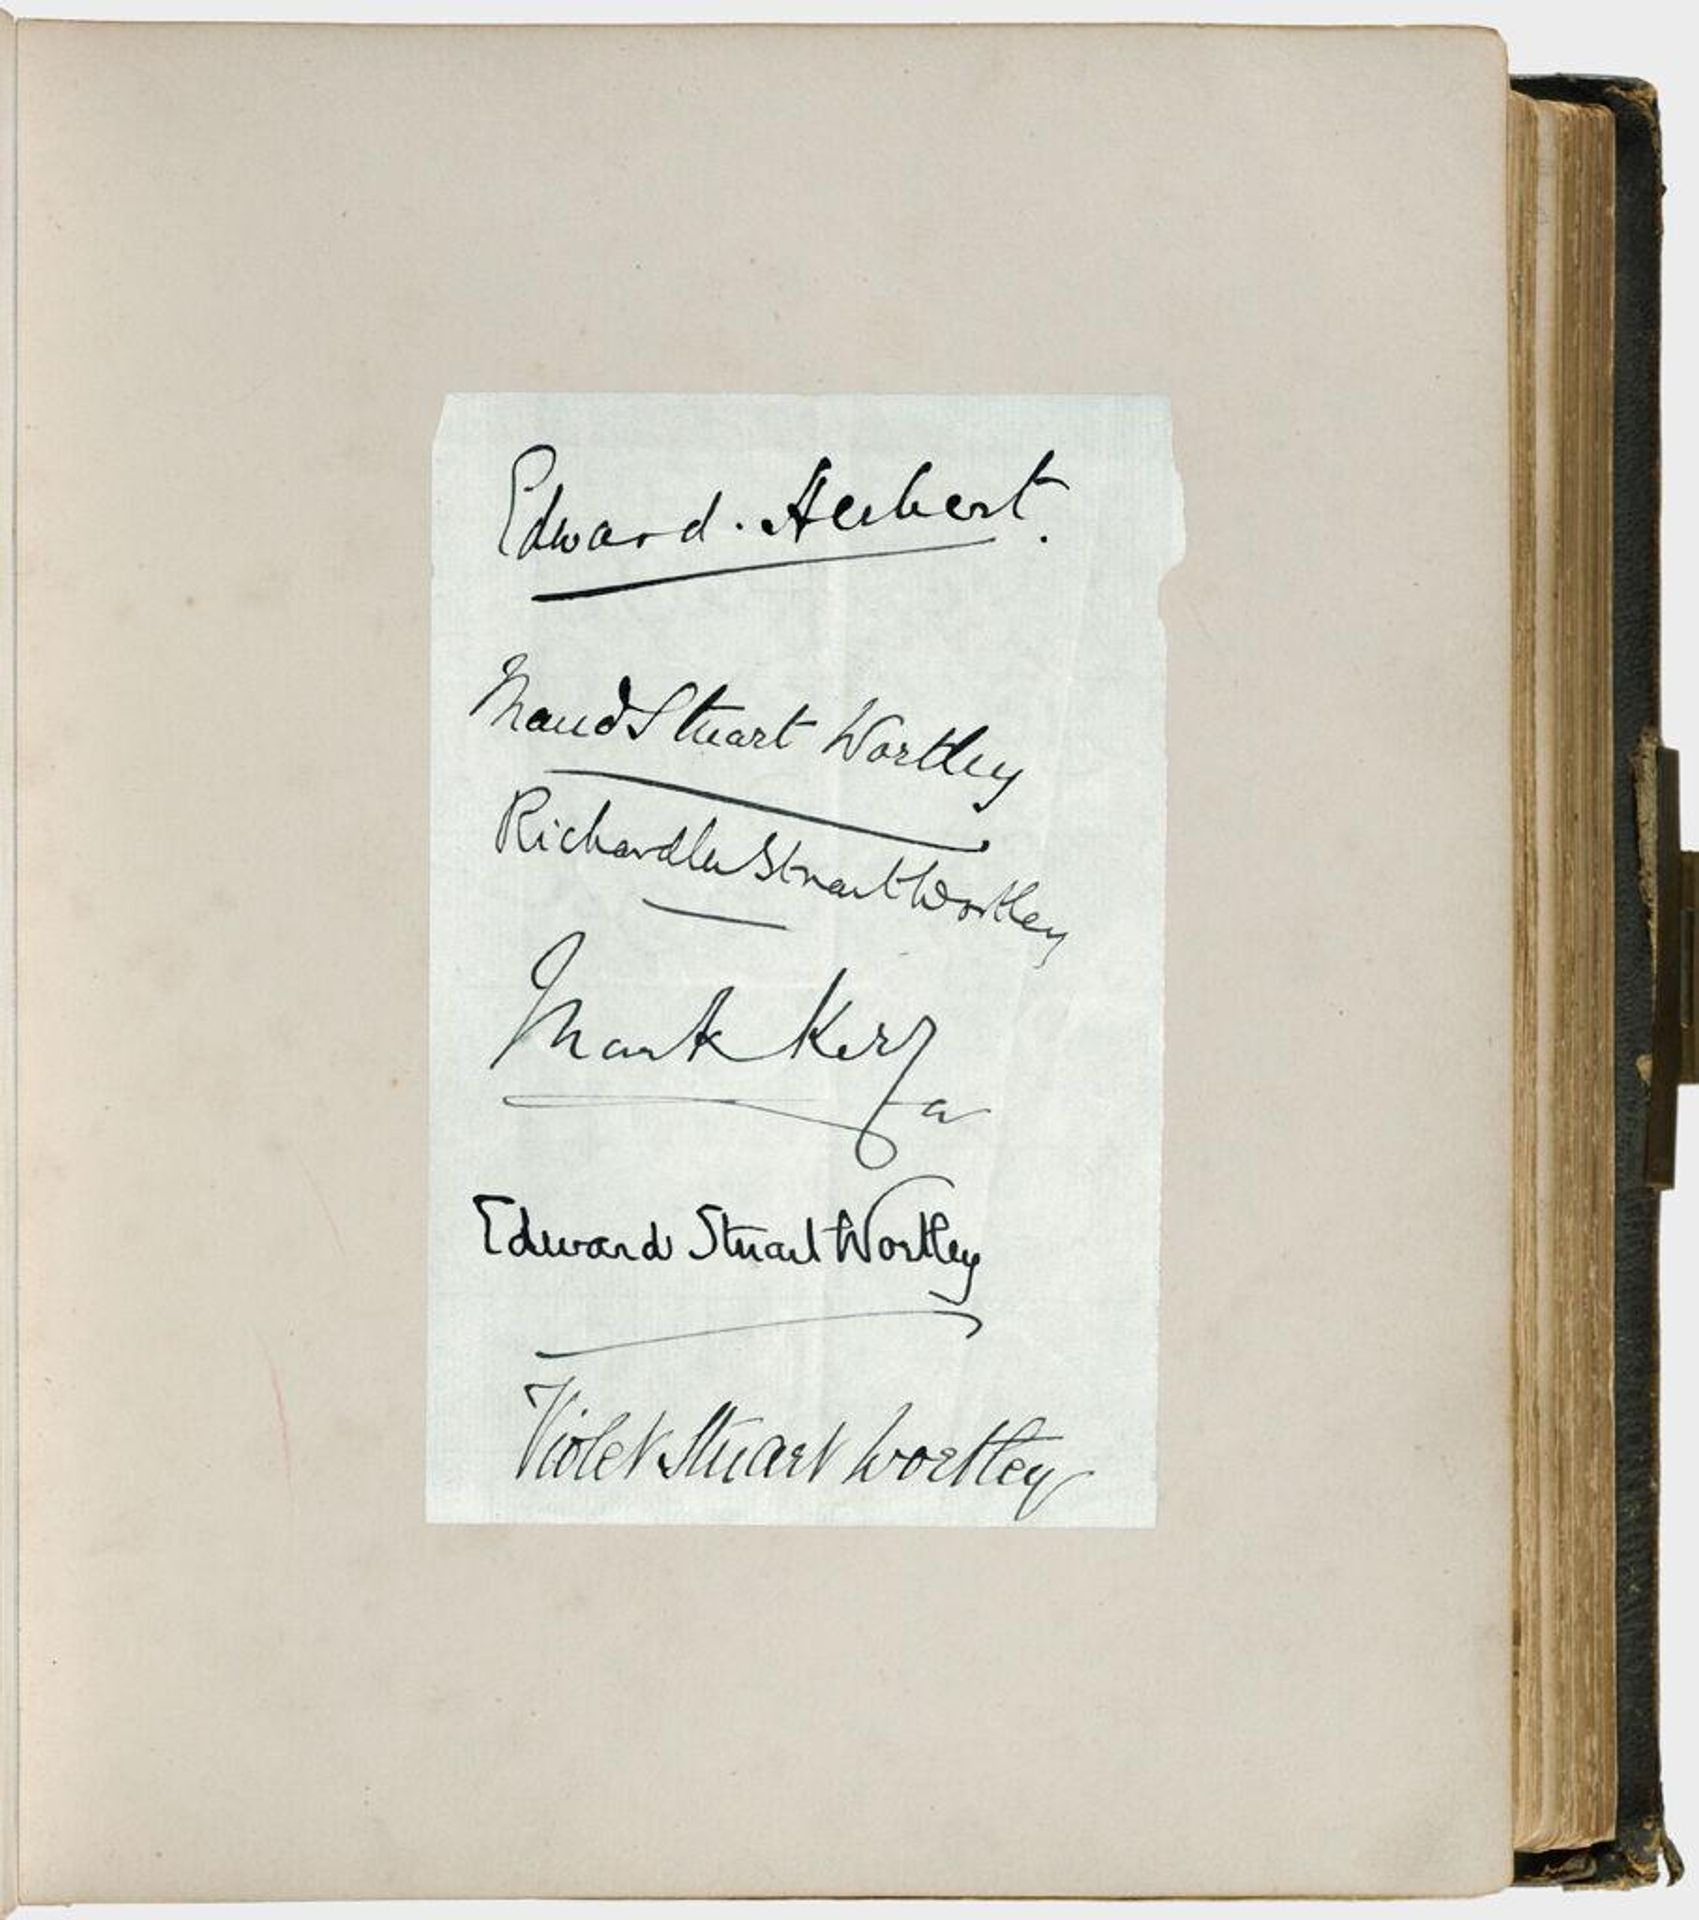 Edward. Herbert.
Maud Stuart Wortley
Stuart Wortley
Mark Kerr
Edward Stuart Wortley
Violet Stuart Wortley